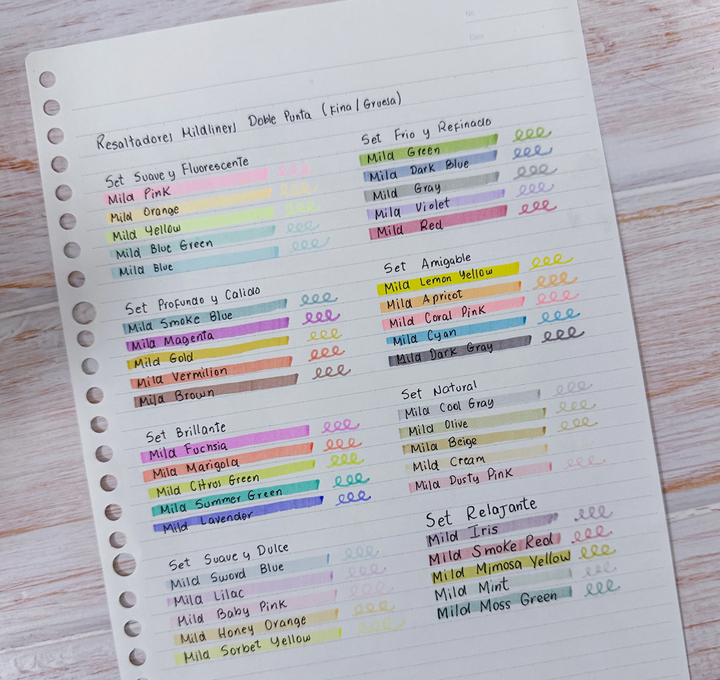 Resaltadores Mildliners Doble Punta (Fina / Gruesa)
Set Suave y Fluorescente
Mild Pink
Mild Orange
Mild Yellow
Mild Blue Green
Mild Blue
Set Profundo y Calido
Mild Smoke Blue
Mild Magenta
Mild Gold
Mild Vermilion
Mild Brown
Set Brillante
Mild Fuchsia
Mild Marigold
Mild Citrus Green
Mild Summer Green
Mild Lavender
Set Suave y Dulce
Mild Sword Blue
Mild Lilac
Mild Baby Pink
Mild Honey Orange
Mild Sorbet Yellow
Set Frio y Refinado
Mild Green
Mild Dark Blue
Mild Gray
Mild Violet
Mild Red
Set Amigable
Mild Lemon Yellow
Mild Apricot
Mild Coral Pink
Mild Cyan
Mild Dark Gray
Set Natural
Mild Cool Gray
Mild Olive
Mild Beige
Mild Cream
Mild Dusty Pink
Set Relajante
Mild Iris
Mild Smoke Red
Mild Mimosa Yellow
Mild Mint
Mild Moss Green